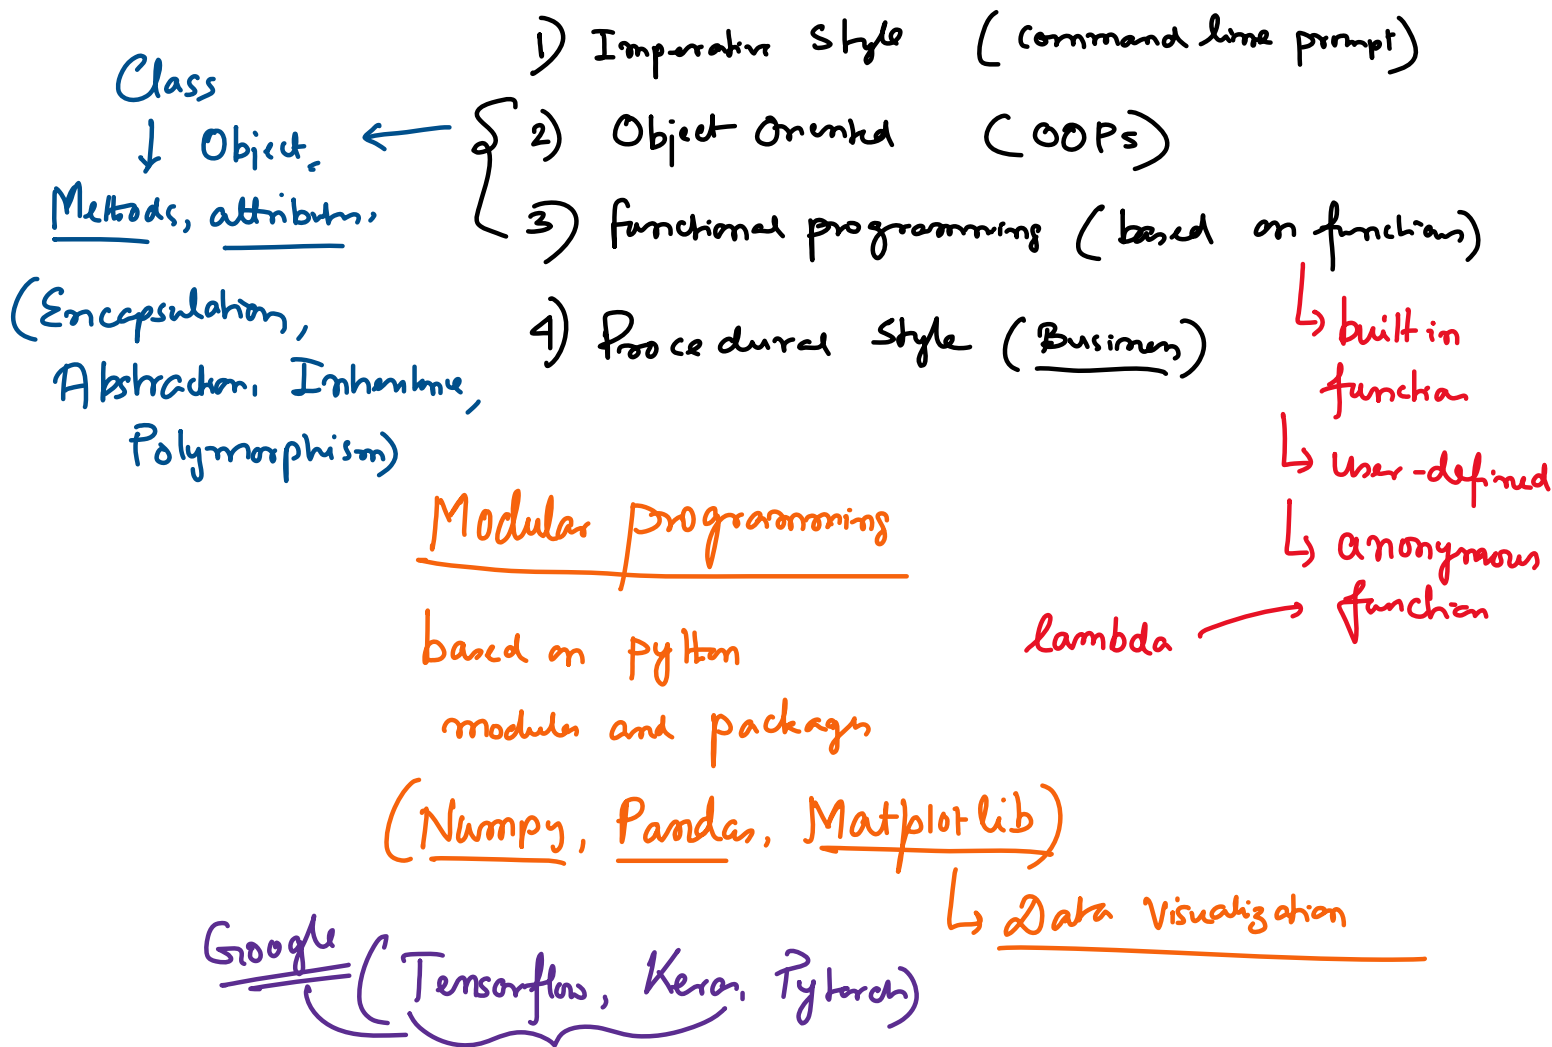 1) Imperative Style (command line prompt)
2) Object Oriented (OOPs)
3) functional programming (based on functions)
4) Procedural Style (Business)
Class
↓ Object,
Methods, attributes,
(Encapsulation,
Abstraction, Inheritance,
Polymorphism)
↳ built in
function
↳ user-defined
↳ anonymous
function
lambda →
Modular programming
based on python
modules and packages
(Numpy, Pandas, Matplotlib)
↳ Data Visualization
Google (Tensorflow, Keras, Pytorch)